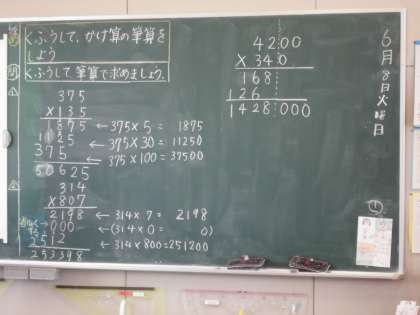 くふうして、かけ算の筆算を
しよう
くふうして筆算で求めましょう。
375
×135
1875 ← 375×5 = 1875
1125 ← 375×30 = 11250
375 ← 375×100 = 37500
50625
314
×807
2198 ← 314×7 = 2198
000 ← (314×0 = 0)
2512 ← 314×800=251200
253398
4200
×340
168
126
1428000
6月8日火曜日